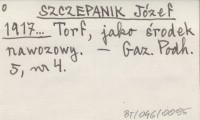 SZCZEPANIK Józef
1917... Torf, jako środek
nawozowy. — Gaz. Podh.
5, nr 4.
BJ/096/0055